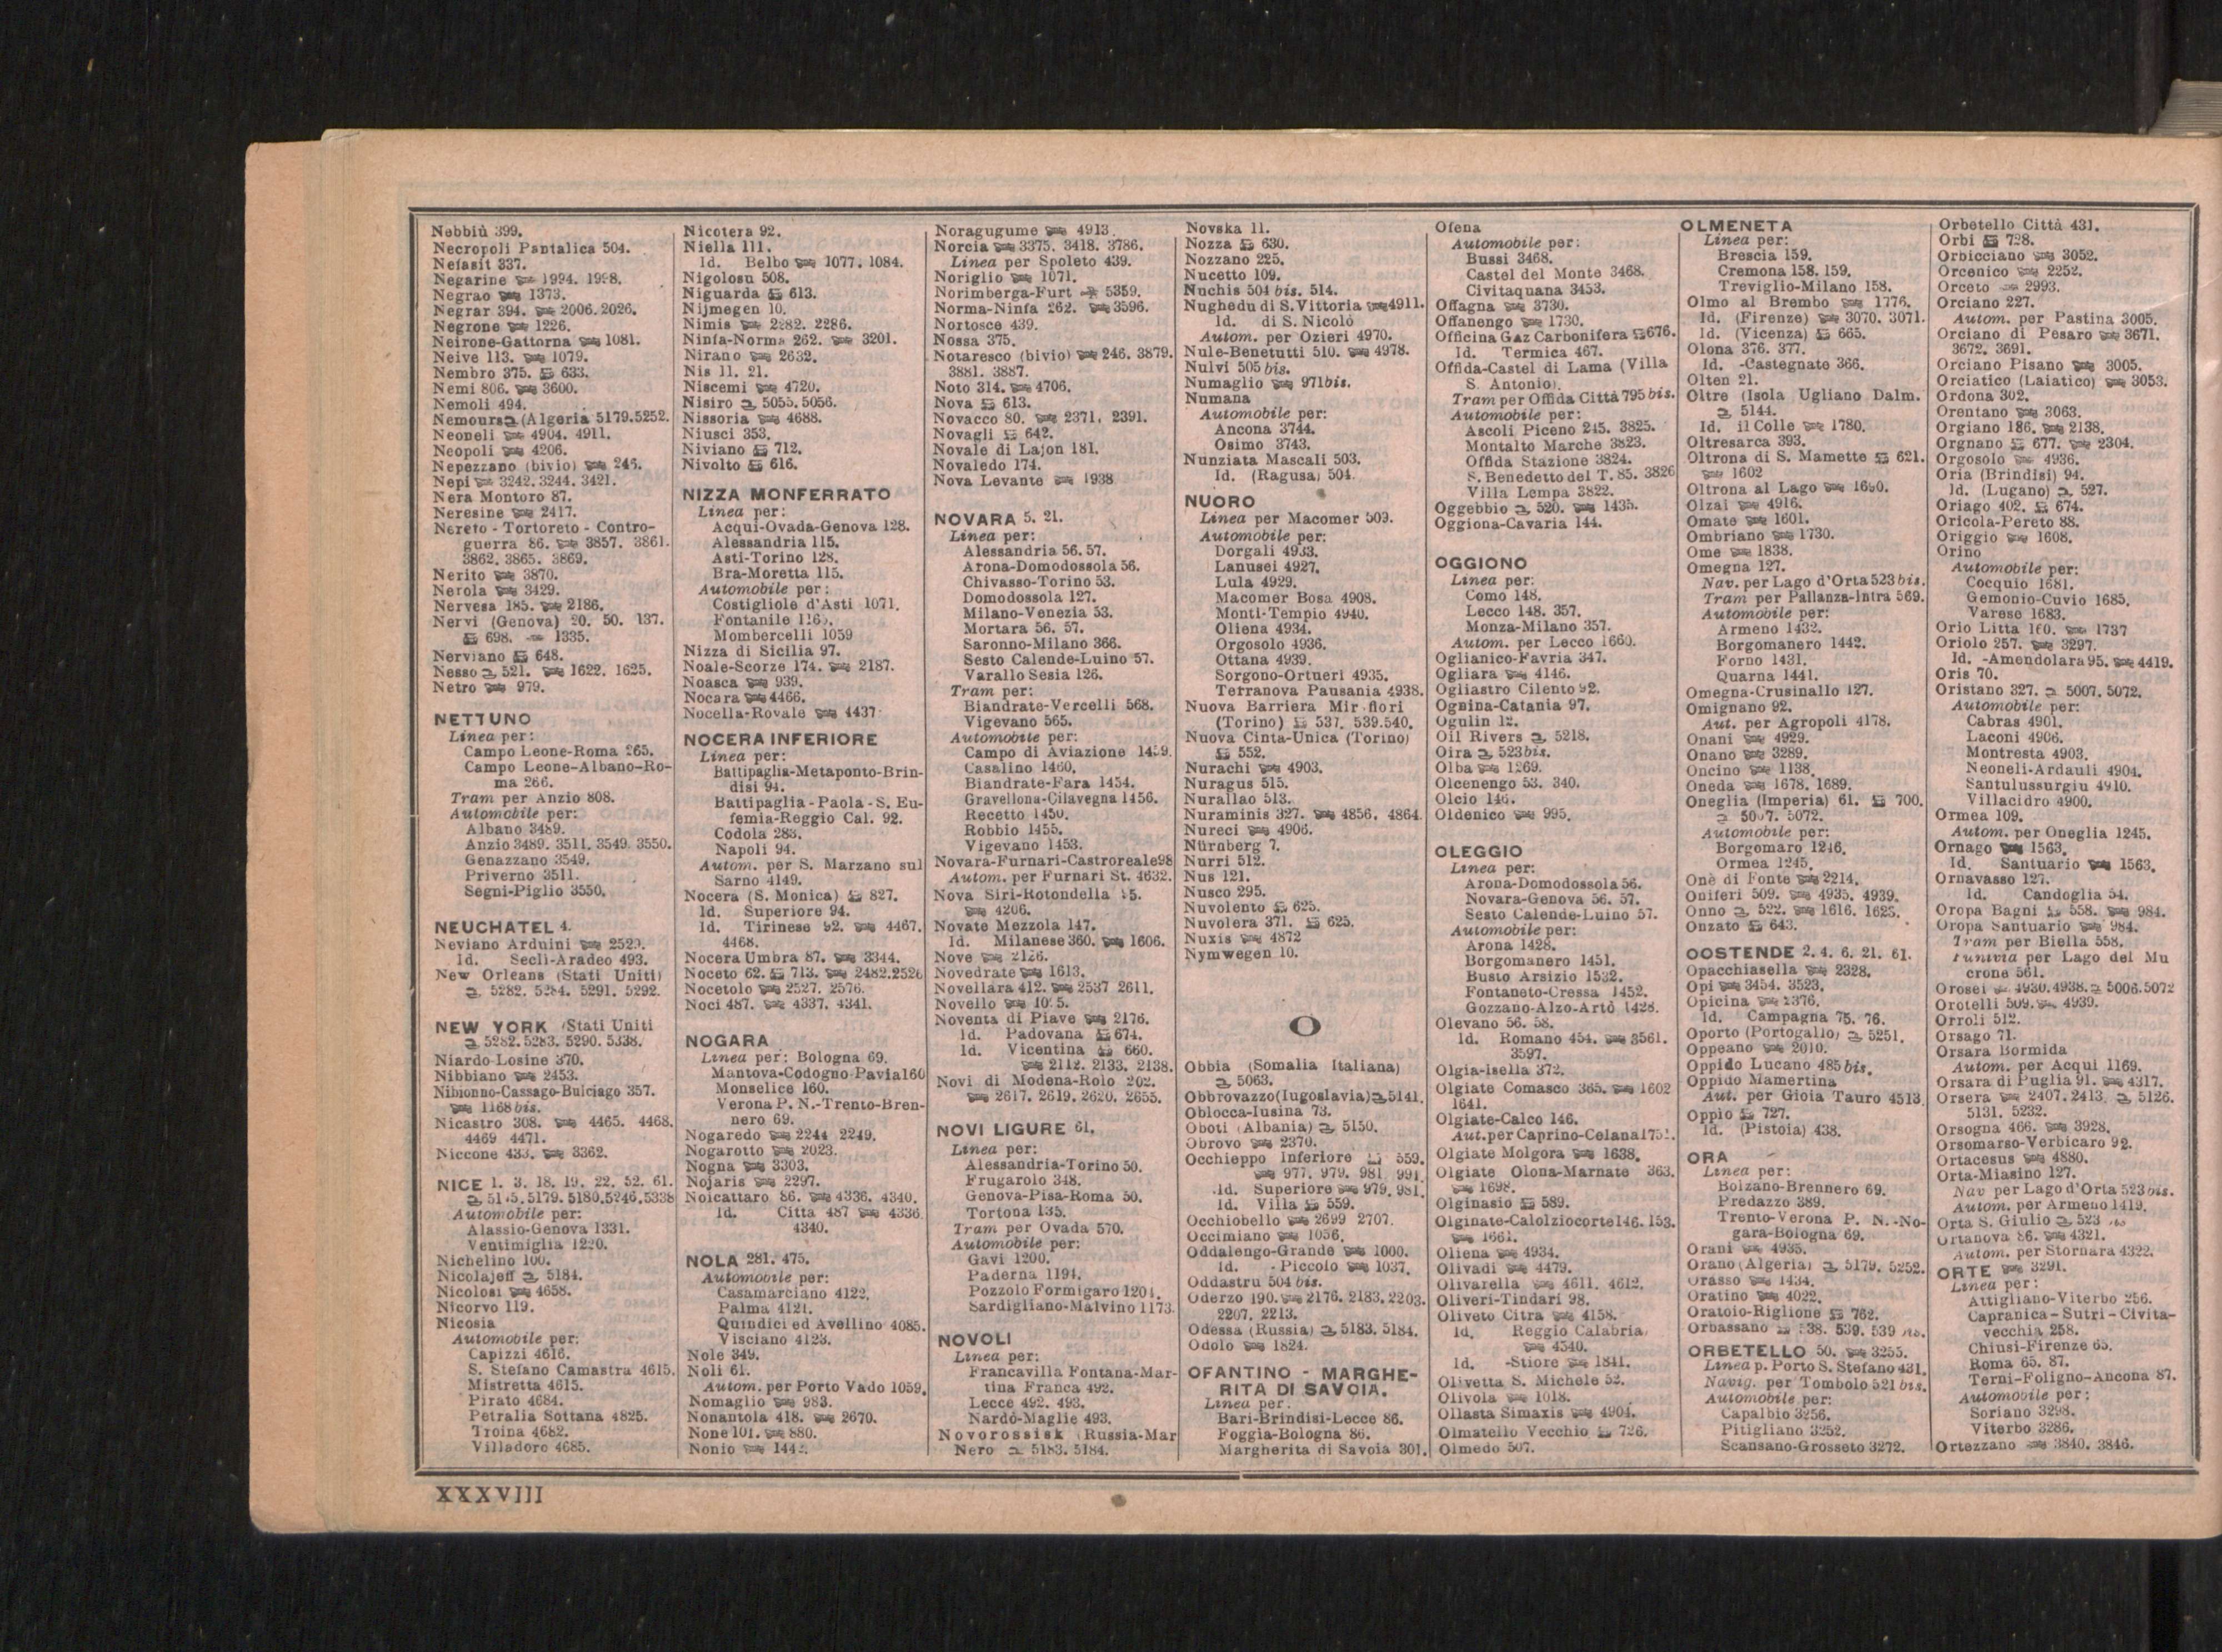 Nebbiù 399.
Necropoli Pantalica 504.
Nefasit 337.
Negarine 1994. 1998.
Negrao 1373.
Negrar 394. 2006. 2026.
Negrone 1226.
Neirone-Gattorna 1081.
Neive 113. 1079.
Nembro 375. 633.
Nemi 806. 3600.
Nemoli 494.
Nemours (Algeria 5179.5252.
Neoneli 4904. 4911.
Neopoli 4206.
Nepezzano (bivio) 246.
Nepi 3242. 3244. 3421.
Nera Montoro 87.
Neresine 2417.
Nereto - Tortoreto - Contro-
guerra 86. 3857. 3861.
3862. 3865. 3869.
Nerito 3870.
Nerola 3429.
Nervesa 185. 2186.
Nervi (Genova) 20. 50. 137.
698. 1335.
Nerviano 648.
Nesso 521. 1622. 1625.
Netro 979.
NETTUNO
Linea per:
Campo Leone-Roma 265.
Campo Leone-Albano-Ro-
ma 266.
Tram per Anzio 808.
Automobile per:
Albano 3489.
Anzio 3489. 3511. 3549. 3550.
Genazzano 3549.
Priverno 3511.
Segni-Piglio 3550.
NEUCHATEL 4.
Neviano Arduini
Id. Secli-Aradeo 493.
New Orleans (Stati Uniti)
5282. 5284. 5291. 5292.
NEW YORK (Stati Uniti
5282. 5283. 5290. 5338.
Niardo-Losine 370.
Nibbiano 2453.
Nibionno-Cassago-Bulciago 357.
1168 bis.
Nicastro 308. 4465. 4468.
4469 4471.
Niccone 433. 3362.
NICE 1. 3. 18. 19. 22. 52. 61.
5179. 5180. 5246. 5338
Automobile per:
Alassio-Genova 1331.
Ventimiglia 1220.
Nichelino 100.
Nicolajeff 5184.
Nicolosi 4658.
Nicorvo 119.
Nicosia
Automobile per:
Capizzi 4616.
S. Stefano Camastra 4615.
Mistretta 4615.
Pirato 4684.
Petralia Sottana 4825.
Troina 4682.
Villadoro 4685.
Nicotera 92.
Niella 111.
Id. Belbo 1077. 1084.
Nigolosu 508.
Niguarda 613.
Nijmegen 10.
Nimis 2282. 2286.
Ninfa-Norma 262. 3201.
Nirano 2632.
Nis 11. 21.
Niscemi 4720.
Nisiro 5055. 5056.
Nissoria 4688.
Niusci 353.
Niviano 712.
Nivolto 616.
NIZZA MONFERRATO
Linea per:
Acqui-Ovada-Genova 128.
Alessandria 115.
Asti-Torino 128.
Bra-Moretta 115.
Automobile per:
Costigliole d'Asti 1071.
Fontanile
Mombercelli 1059
Nizza di Sicilia 97.
Noale-Scorze 174. 2187.
Noasca 939.
Nocara 4466.
Nocella-Rovale 4437
NOCERA INFERIORE
Linea per:
Battipaglia-Metaponto-Brin-
disi 94.
Battipaglia - Paola - S. Eu-
femia-Reggio Cal. 92.
Codola 283.
Napoli 94.
Autom. per S. Marzano sul
Sarno 4149.
Nocera (S. Monica) 827.
Id. Superiore 94.
Id. Tirinese 92. 4467.
4468.
Nocera Umbra 87. 3344.
Noceto 62. 713. 2482. 2526
Nocetolo 2527. 2576.
Noci 487. 4337. 4341.
NOGARA
Linea per: Bologna 69.
Mantova-Codogno-Pavia 160
Monselice 160.
Verona P. N.-Trento-Bren-
nero 69.
Nogaredo 2244 2249.
Nogarotto 2023.
Nogna 3303.
Nojaris 2297.
Noicattaro 86. 4336. 4340.
Id. Città 487 4336.
4340.
NOLA 281. 475.
Automobile per:
Casamarciano 4122.
Palma 4121.
Quindici ed Avellino 4085.
Visciano 4123.
Nole 349.
Noli 61.
Autom. per Porto Vado 1059.
Nomaglio 983.
Nonantola 418. 2670.
None 101. 880.
Nonio
Noragugume 4913.
Norcia 3375. 3418. 3786.
Linea per Spoleto 439.
Noriglio 1071.
Norimberga-Furt 5359.
Norma-Ninfa 262. 3596.
Nortosce 439.
Nossa 375.
Notaresco (bivio) 246. 3879.
3881. 3887.
Noto 314. 4706.
Nova 613.
Novacco 80. 2371. 2391.
Novagli 642.
Novale di Lajon 181.
Novaledo 174.
Nova Levante 1938
NOVARA 5. 21.
Linea per:
Alessandria 56. 57.
Arona-Domodossola 56.
Chivasso-Torino 53.
Domodossola 127.
Milano-Venezia 53.
Mortara 56. 57.
Saronno-Milano 366.
Sesto Calende-Luino 57.
Varallo Sesia 126.
Tram per:
Biandrate-Vercelli 568.
Vigevano 565.
Automobile per:
Campo di Aviazione
Casalino 1460.
Biandrate-Fara 1454.
Gravellona-Cilavegna 1456.
Recetto 1450.
Robbio 1455.
Vigevano 1453.
Novara-Furnari-Castroreale 98
Autom. per Furnari St. 4632.
Nova Siri-Rotondella
4206.
Novate Mezzola 147.
Id. Milanese 360. 1606.
Nove 2126.
Novedrate 1613.
Novellara 412. 2537 2611.
Novello
Noventa di Piave 2176.
Id. Padovana 674.
Id. Vicentina 660.
2112. 2133. 2138.
Novi di Modena-Rolo 202.
2617. 2619. 2620. 2655.
NOVI LIGURE 61.
Linea per:
Alessandria-Torino 50.
Frugarolo 348.
Genova-Pisa-Roma 50.
Tortona 135.
Tram per Ovada 570.
Automobile per:
Gavi 1200.
Paderna 1194.
Pozzolo Formigaro 1201.
Sardigliano-Malvino 1173.
NOVOLI
Linea per:
Francavilla Fontana-Mar-
tina Franca 492.
Lecce 492. 493.
Nardó-Maglie 493.
Novorossisk (Russia-Mar
Nero 5183. 5184.
Novska 11.
Nozza 630.
Nozzano 225.
Nucetto 109.
Nuchis 504 bis. 514.
Nughedu di S. Vittoria 4911.
Id. di S. Nicoló
Autom. per Ozieri 4970.
Nule-Benetutti 510. 4978.
Nulvi 505 bis.
Numaglio 971bis.
Numana
Automobile per:
Ancona 3744.
Osimo 3743.
Nunziata Mascali 503.
Id. (Ragusa) 504.
NUORO
Linea per Macomer 509.
Automobile per:
Dorgali 4933.
Lanusei 4927.
Lula 4929.
Macomer Bosa 4908.
Monti-Tempio 4940.
Oliena 4934.
Orgosolo 4936.
Ottana 4939.
Sorgono-Ortueri 4935.
Terranova Pausania 4938.
Nuova Barriera Mirafiori
(Torino) 537. 539. 540.
Nuova Cinta-Unica (Torino)
552.
Nurachi 4903.
Nuragus 515.
Nurallao 513.
Nuraminis 327. 4856. 4864.
Nureci 4906.
Nürnberg 7.
Nurri 512.
Nus 121.
Nusco 295.
Nuvolento 625.
Nuvolera 371. 625.
Nuxis 4872
Nymwegen 10.
O
Obbia (Somalia Italiana)
5063.
Obbrovazzo (Iugoslavia) 5141.
Oblocca-Iusina 73.
Oboti (Albania) 5150.
Obrovo 2370.
Occhieppo Inferiore 559.
977. 979. 981. 991.
Id. Superiore 979. 981.
Id. Villa 559.
Occhiobello 2699 2707.
Occimiano 1056.
Oddalengo-Grande 1000.
Id. - Piccolo 1037.
Oddastru 504 bis.
Oderzo 190. 2176. 2183. 2203.
2207. 2213.
Odessa (Russia) 5183. 5184.
Odolo 1824.
OFANTINO - MARGHE-
RITA DI SAVOIA.
Linea per:
Bari-Brindisi-Lecce 86.
Foggia-Bologna 86.
Margherita di Savoia 301.
Ofena
Automobile per:
Bussi 3468.
Castel del Monte 3468.
Civitaquana 3453.
Offagna 3730.
Offanengo 1730.
Officina Gaz Carbonifera 676.
Id. Termica 467.
Offida-Castel di Lama (Villa
S. Antonio).
Tram per Offida Città 795 bis.
Automobile per:
Ascoli Piceno 245. 3825.
Montalto Marche 3823.
Offida Stazione 3824.
S. Benedetto del T. 85. 3826
Villa Lempa 3822.
Oggebbio 520. 1435.
Oggiona-Cavaria 144.
OGGIONO
Linea per:
Como 148.
Lecco 148. 357.
Monza-Milano 357.
Autom. per Lecco 1660.
Oglianico-Favria 347.
Ogliara 4146.
Ogliastro Cilento 92.
Ognina-Catania 97.
Ogulin 12.
Oil Rivers 5218.
Oira 523bis.
Olba 1269.
Olcenengo 53. 340.
Olcio 146.
Oldenico 995.
OLEGGIO
Linea per:
Arona-Domodossola 56.
Novara-Genova 56. 57.
Sesto Calende-Luino 57.
Automobile per:
Arona 1428.
Borgomanero 1451.
Busto Arsizio 1532.
Fontaneto-Cressa 1452.
Gozzano-Alzo-Artò 1428.
Olevano 56. 58.
Id. Romano 454. 3561.
3597.
Olgia-Isella 372.
Olgiate Comasco 365. 1602
1641.
Olgiate-Calco 146.
Aut. per Caprino-Celana
Olgiate Molgora 1638.
Olgiate Olona-Marnate 363.
1698.
Olginasio 589.
Olginate-Calolziocorte 146. 153.
1661.
Oliena 4934.
Olivadi 4479.
Olivarella 4611. 4612.
Oliveri-Tindari 98.
Oliveto Citra 4158.
Id. Reggio Calabria,
4540.
Id. -Stiore 1841.
Olivetta S. Michele 52.
Olivola 1018.
Ollasta Simaxis 4904.
Olmatello Vecchio 726.
Olmedo 507.
OLMENETA
Linea per:
Brescia 159.
Cremona 158. 159.
Treviglio-Milano 158.
Olmo al Brembo 1776.
Id. (Firenze) 3070. 3071.
Id. (Vicenza) 665.
Olona 376. 377.
Id. -Castegnate 366.
Olten 21.
Oltre (Isola Ugliano Dalm.
5144.
Id. il Colle 1780.
Oltresarca 393.
Oltrona di S. Mamette 621.
1602
Oltrona al Lago
Olzai 4916.
Omate 1601.
Ombriano 1730.
Ome 1838.
Omegna 127.
Nav. per Lago d'Orta 523 bis.
Tram per Pallanza-Intra 569.
Automobile per:
Armeno 1432.
Borgomanero 1442.
Forno 1431.
Quarna 1441.
Omegna-Crusinallo 127.
Omignano 92.
Aut. per Agropoli 4178.
Onani 4929.
Onano 3289.
Oncino 1138.
Oneda 1678. 1689.
Oneglia (Imperia) 61. 700.
5007. 5072.
Automobile per:
Borgomaro 1246.
Ormea 1245.
Onè di Fonte 2214.
Oniferi 509. 4935. 4939.
Onno 522. 1616. 1623.
Onzato 643.
OOSTENDE 2. 4. 6. 21. 61.
Opacchiasella 2328.
Opi 3454. 3523.
Opicina 2376.
Id. Campagna 75. 76.
Oporto (Portogallo) 5251.
Oppeano 2010.
Oppido Lucano 485 bis.
Oppido Mamertina
Aut. per Gioia Tauro 4513.
Oppio 727.
Id. (Pistoia) 438.
ORA
Linea per:
Bolzano-Brennero 69.
Predazzo 389.
Trento-Verona P. N.-No-
gara-Bologna 69.
Orani 4935.
Orano (Algeria) 5179. 5252.
Orasso 1434.
Oratino 4022.
Oratoio-Riglione 762.
Orbassano 538. 539. 539 bis.
ORBETELLO 50. 3255.
Linea p. Porto S. Stefano 431.
Navig. per Tombolo 521 bis.
Automobile per:
Capalbio 3256.
Pitigliano 3252.
Scansano-Grosseto 3272.
Orbetello Città 431.
Orbi 728.
Orbicciano 3052.
Orcenico 2252.
Orceto 2993.
Orciano 227.
Autom. per Pastina 3005.
Orciano di Pesaro 3671.
3672. 3691.
Orciano Pisano 3005.
Orciatico (Laiatico) 3053.
Ordona 302.
Orentano 3063.
Orgiano 186. 2138.
Orgnano 677. 2304.
Orgosolo 4936.
Oria (Brindisi) 94.
Id. (Lugano) 527.
Oriago 402. 674.
Oricola-Pereto 88.
Origgio 1608.
Orino
Automobile per:
Cocquio 1681.
Gemonio-Cuvio 1685.
Varese 1683.
Orio Litta 160. 1737
Oriolo 257. 3297.
Id. -Amendolara 95. 4419.
Oris 70.
Oristano 327. 5007. 5072.
Automobile per:
Cabras 4901.
Laconi 4906.
Montresta 4903.
Neoneli-Ardauli 4904.
Santulussurgiu 4910.
Villacidro 4900.
Ormea 109.
Autom. per Oneglia 1245.
Ornago 1563.
Id. Santuario 1563.
Ornavasso 127.
Id. Candoglia 54.
Oropa Bagni 558. 984.
Oropa Santuario 984.
Tram per Biella 558.
Funivia per Lago del Mu
crone 561.
Orosei 4930. 4938. 5006. 5072
Orotelli 509. 4939.
Orroli 512.
Orsago 71.
Orsara Bormida
Autom. per Acqui 1169.
Orsara di Puglia 91. 4317.
Orsera 2407. 2413. 5126.
5131. 5232.
Orsogna 466. 3928.
Orsomarso-Verbicaro 92.
Ortacesus 4880.
Orta-Miasino 127.
Nav per Lago d'Orta 523 bis.
Autom. per Armeno 1419.
Orta S. Giulio 523 bis
Ortanova 86. 4321.
Autom. per Stornara 4322.
ORTE 3291.
Linea per:
Attigliano-Viterbo 256.
Capranica - Sutri - Civita-
vecchia 258.
Chiusi-Firenze 65.
Roma 65. 87.
Terni-Foligno-Ancona 87.
Automobile per:
Soriano 3298.
Viterbo 3286.
Ortezzano 3840. 3846.
XXXVIII